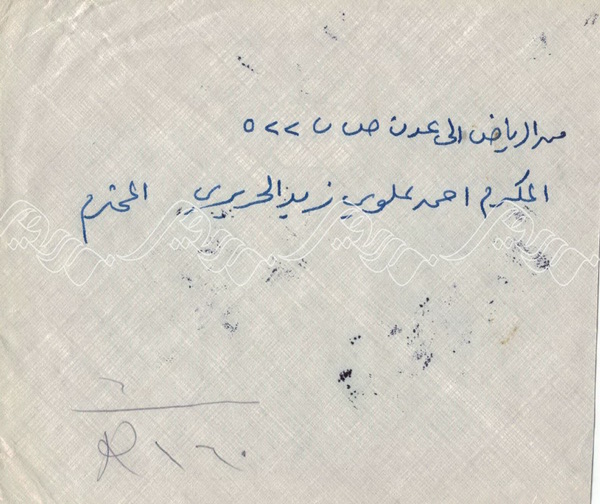 من الرياض الى عدن ص ب ٥٢٢
المكرم احمد علوي زيد الحريري المحترم
R ١٢٠